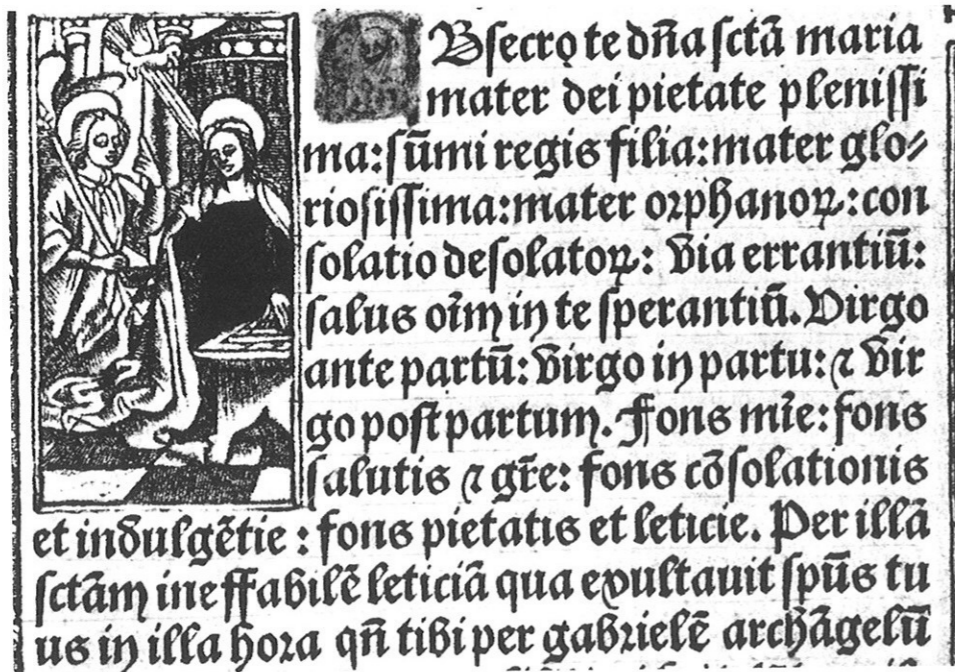 OBsecro te dn̄a sctā maria
mater dei pietate plenissi
ma: sūmi regis filia: mater glo⸗
riosissima: mater orphanoꝝ: con
solatio desolatoꝝ: via errantiū:
salus oīm in te sperantiū. Virgo
ante partū: virgo in partu: ⁊ vir
go post partum. Fons mīe: fons
salutis ⁊ gr̄e: fons cōsolationis
et indulgētie: fons pietatis et leticie. Per illā
sctām ineffabilē leticiā qua exultauit spūs tu
us in illa hora qn̄ tibi per gabrielē archāgelū